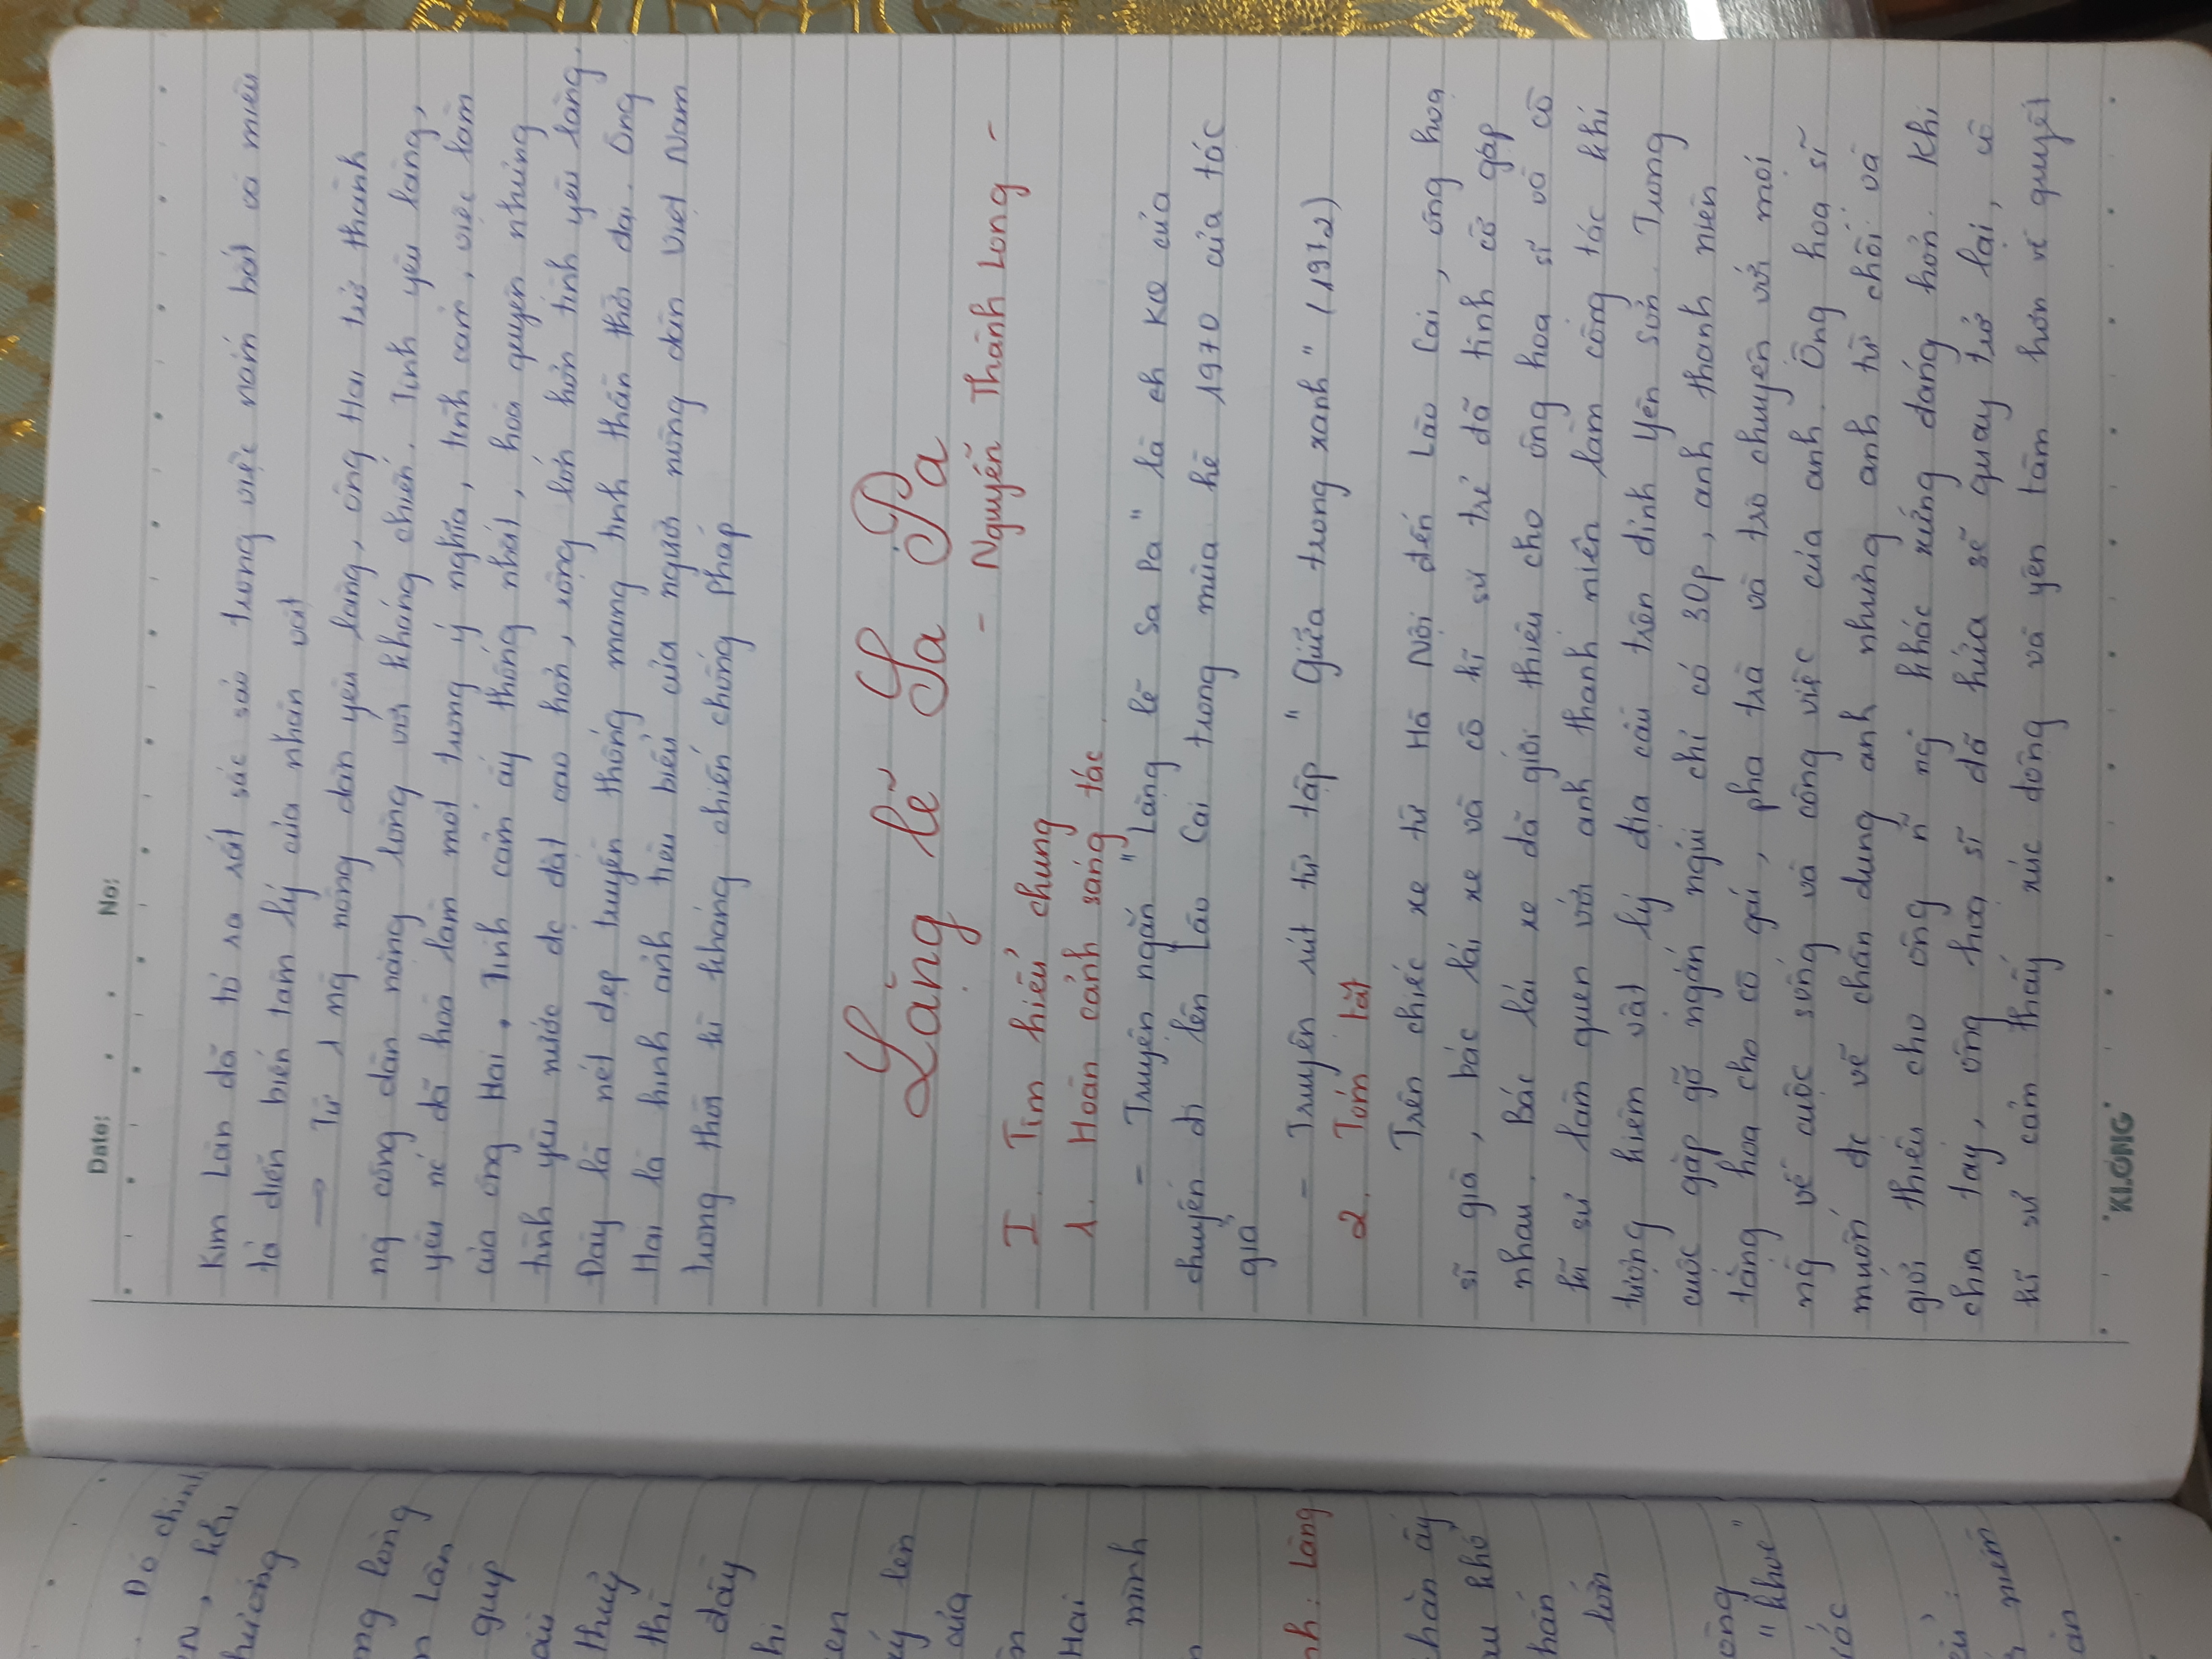 Date: No:
Kim Lân đã tỏ ra rất sắc sảo trong việc nắm bắt và miêu
tả diễn biến tâm lý của nhân vật
→ Từ 1 ng nông dân yêu làng, ông Hai trở thành
ng công dân nặng lòng với kháng chiến. Tình yêu làng,
yêu nc đã hoà làm một trong ý nghĩa, tình cảm, việc làm
của ông Hai. Tình cảm ấy thống nhất, hoà quyện nhưng
tình yêu nước đc đặt cao hơn, rộng lớn hơn tình yêu làng.
Đây là nét đẹp truyền thống mang tinh thần thời đại. Ông
Hai là hình ảnh tiêu biểu của người nông dân Việt Nam
trong thời kì kháng chiến chống Pháp
Lặng lẽ Sa Pa
- Nguyễn Thành Long -
I. Tìm hiểu chung
1. Hoàn cảnh sáng tác
- Truyện ngắn "Lặng lẽ Sa Pa" là KQ của
chuyến đi lên Lào Cai trong mùa hè 1970 của tác
giả
- Truyện rút từ tập "Giữa trong xanh" (1972)
2. Tóm tắt
Trên chiếc xe từ Hà Nội đến Lào Cai, ông hoạ
sĩ già, bác lái xe và cô kĩ sư trẻ đã tình cờ gặp
nhau. Bác lái xe đã giới thiệu cho ông hoạ sĩ và cô
kĩ sư làm quen với anh thanh niên làm công tác khí
tượng kiêm vật lý địa cầu trên đỉnh Yên Sơn. Trong
cuộc gặp gỡ ngắn ngủi chỉ có 30p, anh thanh niên
tặng hoa cho cô gái, pha trà và trò chuyện với mọi
ng về cuộc sống và công việc của anh. Ông hoạ sĩ
muốn đc vẽ chân dung anh nhưng anh từ chối và
giới thiệu cho ông n~ ng khác xứng đáng hơn. Khi
chia tay, ông hoạ sĩ đã hứa sẽ quay trở lại, cô
kĩ sư cảm thấy xúc động và yên tâm hơn về quyết
KLONG